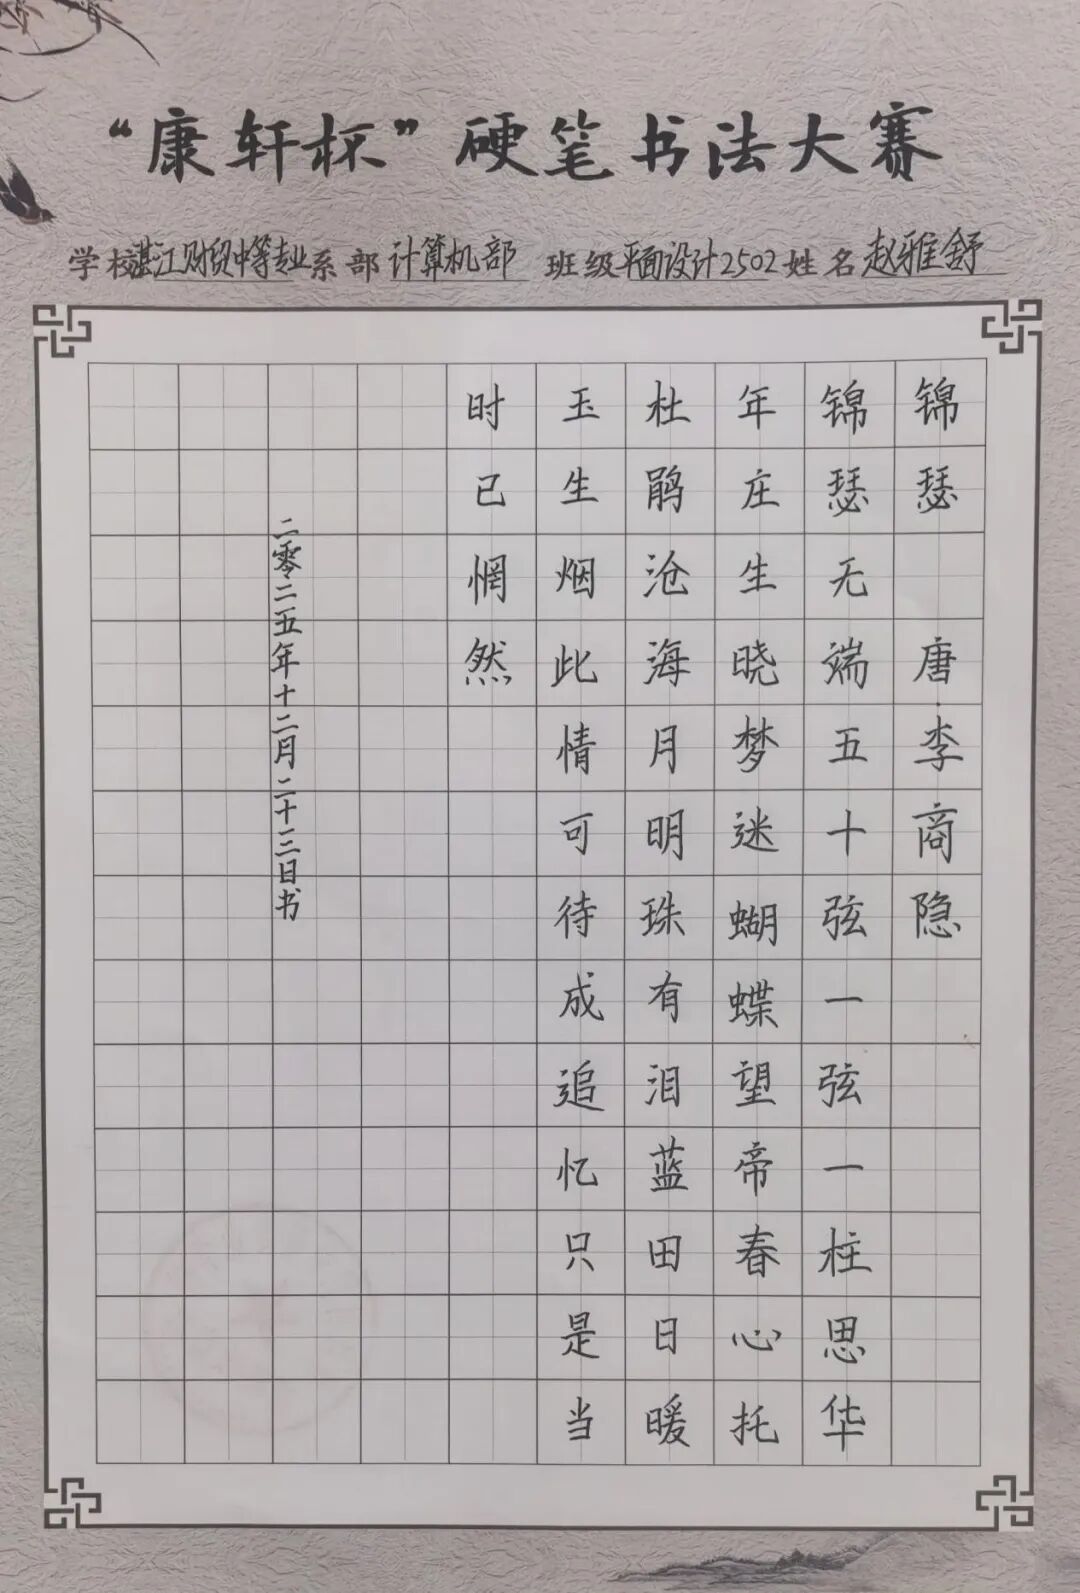 “康轩杯”硬笔书法大赛
学校湛江财贸中等专业系部计算机部 班级平面设计2502姓名赵雅舒
锦瑟 唐·李商隐
锦瑟无端五十弦一弦一柱思华
年庄生晓梦迷蝴蝶望帝春心托
杜鹃沧海月明珠有泪蓝田日暖
玉生烟此情可待成追忆只是当
时已惘然
二零二五年十二月二十三日书